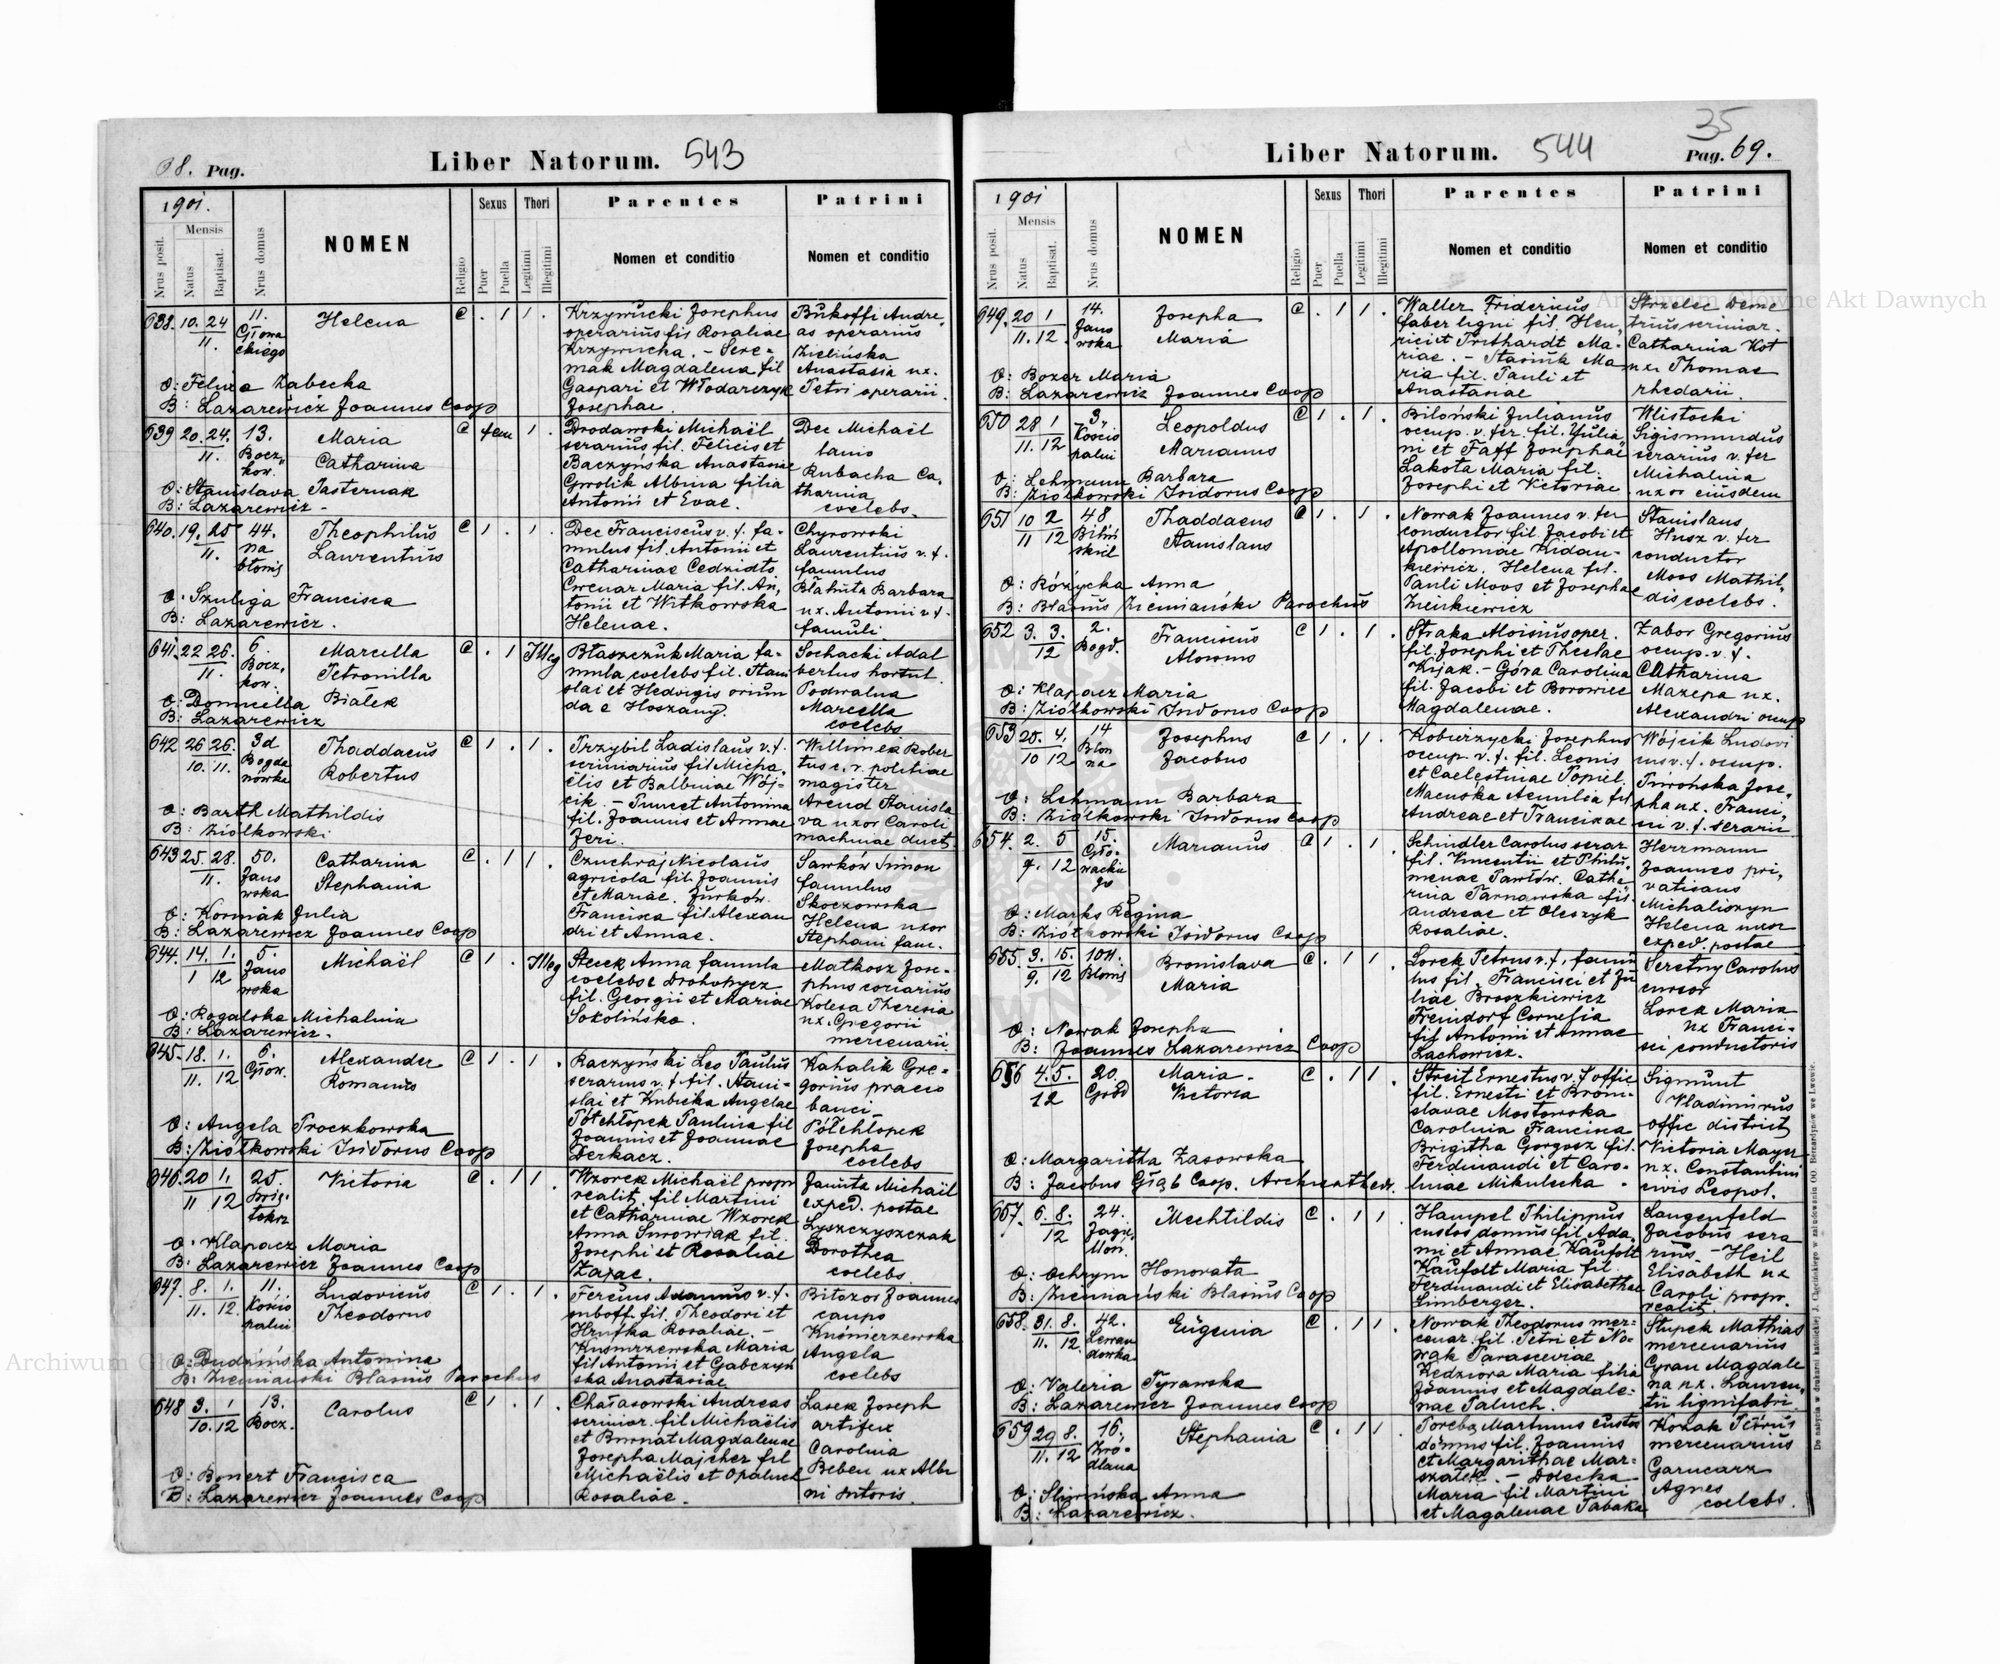 68. Pag.
Liber Natorum. 543
1901.
Nrus posit.
Mensis
Natus
Baptisat.
Nrus domus
NOMEN
Religio
Sexus
Puer
Puella
Thori
Legitimi
Illegitimi
Parentes
Nomen et conditio
Patrini
Nomen et conditio
638. 10. 24 11.
11.
Helena
C . 1 1 .
Krzywucki Josephus
operarius fil Rosaliae
Krzywucka. - Sere-
mak Magdalena fil
Gaspari et Włodarczyk
Josephae.
Bukoffi Andre-
as operarius
Zielińska
Anastasia ux.
Petri operarii.
O: Felixa Zabecka
B: Lazarewicz Joannes Coop
639 20. 24. 13.
11. Bocz
kow.
Maria
Catharina
C fem 1 .
Drodawski Michaël
serarius fil. Felicis et
Baczyńska Anastasiae
Gwolik Albina filia
Antonii et Evae.
Dec Michaël
lanio
Rubacha Ca-
tharina
coelebs.
O: Stanislava Pasternak
B: Lazarewicz -
640. 19. 25 44.
11. na
błonis
Theophilus
Laurentius
C 1 . 1 .
Dec Franciscus v. f. fa-
mulus fil. Antonii et
Catharinae Cedzidło
Cwenar Maria fil. An-
tonii et Witkowska
Helenae.
Chyrowski
Laurentius v. f.
famulus
Błahuta Barbara
ux. Antonii v f.
famuli.
O. Szuliga Francisca
B: Lazarewicz.
641. 22 26. 6.
11. Bocz.
kow.
Marcella
Petronilla
C . 1 Illeg
Błaszczuk Maria fa-
mula coelebs fil. Stani
slai et Hedvigis oriun
da e Hoszany.
Sochacki Adal
bertus hortul.
Podwalna
Marcella
coelebs.
O: Domicella Białek
B: Lazarewicz
642 26 26. 3d
10. 11. Bogda
nówka
Thaddaeus
Robertus
C 1 . 1 .
Przybil Ladislaus v. f.
scriniarius fil Micha-
ëlis et Balbinae Wój-
cik. - Antonina
fil. Joannis et Annae
Zeri.
Willimek Rober
tus c. r. politiae
magister
Arend Stanisla
va uxor Caroli
machinae duct.
O: Barth Mathildis
B: Ziółkowski
643 25. 28. 50.
11. Jano
wska
Catharina
Stephania
C . 1 1 .
Czuchraj Nicolaus
agricola fil. Joannis
et Mariae. Żurków.
Francisca fil. Alexan
dri et Annae.
Sawków Simon
famulus
Skoczowska
Helena uxor
Stephani fam.
O: Kormak Julia
B: Lazarewicz Joannes Coop
644. 14. 1. 5.
1 12 Jano
wska
Michaël
C 1 . Illeg
Steck Anna famula
coelebs e Drohobycz
fil. Georgii et Mariae
Sokolińska.
Matkosz Jose-
phus coriarius
Kolesa Theresia
ux. Gregorii
mercenarii.
O: Rogalska Michalina
B: Lazarewicz.
645. 18. 1. 6.
11. 12 Głow.
Alexander
Romanus
C 1 . 1 .
Raczyński Leo Paulus
serarius v. f fil. Stani-
slai et Kubicka Angelae
Półchłopek Paulina fil
Joannis et Joannae
Derkacz.
Kahalik Gre-
gorius praeco
banci -
Półchłopek
Josepha
coelebs
O: Angela Proczkowska
B: Ziółkowski Isidorus Coop
646. 20 1. 25.
11 12
Victoria
C . 1 1 .
Wzorek Michaël propr
realit. fil Martini
et Catharinae Wzorek
Anna Surowiak fil.
Josephi et Rosaliae
Zając.
Janita Michaël
exped. postae
Łyszczyszczak
Dorothea
coelebs
O: Klapacz Maria
B: Lazarewicz Joannes Coop
647. 8. 1. 11.
11. 12. Kości
palni
Ludovicus
Theodorus
C 1 . 1 .
Ferens Adamus v. f.
fil. Theodori et
Rosaliae. -
Kusnirzewska Maria
fil Antonii et Gabczyń
ska Anastasiae
Bitszor Joannes
caupo
Kuśnierzewska
Angela
coelebs
O: Dudzińska Antonina
B: Ziemianski Blasius Parochus
648 3. 1 13.
10. 12 Bocz.
Carolus
C 1 . 1 .
Chałasowski Andreas
scriniar. fil Michaëlis
et Burnat Magdalenae
Josepha Majcher fil
Michaëlis et Opaluch
Rosaliae.
Lasek Joseph
artifex
Carolina
Beben ux Albi
ni sutoris.
O: Bonert Francisca
B: Lazarewicz Joannes Coop
35
Liber Natorum. 544
Pag. 69.
1901
Nrus posit.
Mensis
Natus
Baptisat.
Nrus domus
NOMEN
Religio
Sexus
Puer
Puella
Thori
Legitimi
Illegitimi
Parentes
Nomen et conditio
Patrini
Nomen et conditio
649. 20 1 14.
11. 12. Jano
wska
Josepha
Maria
C . 1 1 .
Waller Fridericus
faber ligni fil. Hen-
rici et Trithardt Ma-
riae. - Stasiuk Ma
ria fil. Pauli et
Anastasiae
Strzelec Deme
trius scriniar.
Catharina Kot
ux. Thomae
rhedarii.
O: Bozer Maria
B: Lazarewicz Joannes Coop
650 28 1 3.
11. 12 Kościo
palni
Leopoldus
Marianus
C 1 . 1 .
Biloński Julianus
occup. v. fer. fil. Julia-
ni et Faff Josephae
Lakota Maria fil.
Josephi et Victoriae
Wlistocki
Sigismundus
serarius v. fer
Michalina
uxor eiusdem
O: Lehmann Barbara
B: Ziółkowski Isidorus Coop
651 10 2 48
11 12
Thaddaeus
Stanislaus
C 1 . 1 .
Nowak Joannes v. fer
conductor fil. Jacobi et
Apolloniae Zidan-
kiewicz. Helena fil.
Pauli Moos et Josepha
Zienkiewicz
Stanislaus
Husz v. fer
conductor
Moos Mathil-
dis coelebs.
O: Różycka Anna
B: Blasius Ziemiański Parochus
652 3. 3. 2.
12 Bogd.
Franciscus
Aloisius
C 1 . 1 .
Straka Aloisius oper.
fil. Josephi et Theclae
Kijak. - Góra Carolina
fil. Jacobi et Borowiec
Magdalenae.
Zabor Gregorius
occup. v. f.
Catharina
Mazepa ux.
Alexandri occup
O: Klapacz Maria
B: Ziółkowski Isidorus Coop
653 25. 4. 14
10 12 Błon
na
Josephus
Jacobus
C 1 . 1 .
Koburzycki Josephus
occup v. f. fil. Leonis
et Caelestinae Popiel.
Macuska Aemilia fil
Andreae et Franciscae
Wójcik Ludovi
cus v. f. occup.
Piwońska Jose-
pha ux. Franci-
sci v. f. serarii
O: Lehmann Barbara
B: Ziółkowski Isidorus Coop
654. 2. 5 15.
9. 12 Gło-
wackie
go
Marianus
C 1 . 1 .
Schindler Carolus serar
fil. Vincentii et Philo-
menae Pawłów. Cathe-
rina Tarnawska fil.
Andreae et Oleszyk
Rosaliae.
Herrmann
Joannes pri-
vatisans
Michaliszyn
Helena uxor
exped. postae
O: Marks Regina
B: Ziółkowski Isidorus Coop
655. 3. 15. 104.
9. 12 Błonis
Bronislava
Maria
C . 1 1 .
Lorek Petrus v. f. famu
lus fil. Francisci et Ju
liae Broszkiewicz
Freindorf Cornelia
fil Antonii et Annae
Lachowicz.
Seretny Carolus
cursor
Lorek Maria
ux Franci-
sci conductoris
O: Nowak Josepha
B: Joannes Lazarewicz Coop
656 4. 5. 20.
12 Gród
Maria
Victoria
C . 1 1
Streit Ernestus v. f offic
fil. Ernesti et Broni-
slavae Mostowska
Carolina Francisca
Brigitha Gorgosz fil.
Ferdinandi et Caro-
linae Mikulecka.
Sigmunt
Vladimirus
offic district
Victoria Mayer
ux. Constantini
civis Leopol.
O: Margaritha Zasowska
B: Jacobus Głąb Coop. Archicathedr.
657. 6. 8. 24.
12
Mechtildis
C . 1 1 .
Hampel Philippus
custos domus fil. Ada-
mi et Annae Kaufolt
Kaufolt Maria fil.
Ferdinandi et Elisabethae
Limberger.
Langenfeld
Jacobus sera
rius - Heil
Elisabeth ux
Caroli propr.
realit
O: Ochrym Honorata
B: Ziemianski Blasius Coop
658. 31. 8. 42.
11. 12. Lewan
dowka
Eugenia
C . 1 1 .
Nowak Theodorus mer-
cenar. fil. Petri et No-
wak Parasceviae
Kędziora Maria filia
Joannis et Magdale-
nae Paluch.
Słupek Mathias
mercenarius
Cyran Magdale
na ux. Lauren-
tii lignifabri.
O: Valeria Tyrawska
B: Lazarewicz Joannes Coop
659 29 8. 16.
11. 12 Kro-
dlana
Stephania
C . 1 1 .
Poreba Martinus custos
domus fil. Joannis
et Margarithae Mar-
szałek. - Dolecka
Maria fil Martini
et Magalenae Tabaka
Kozak Petrus
mercenarius
Garncarz
Agnes
coelebs.
O: Śliwińska Anna
B: Lazarewicz.
Do nabycia w drukarni katolickiej J. Chęcińskiego w zabudowaniu OO. Bernardynów we Lwowie.
Archiwum Główne Akt Dawnych